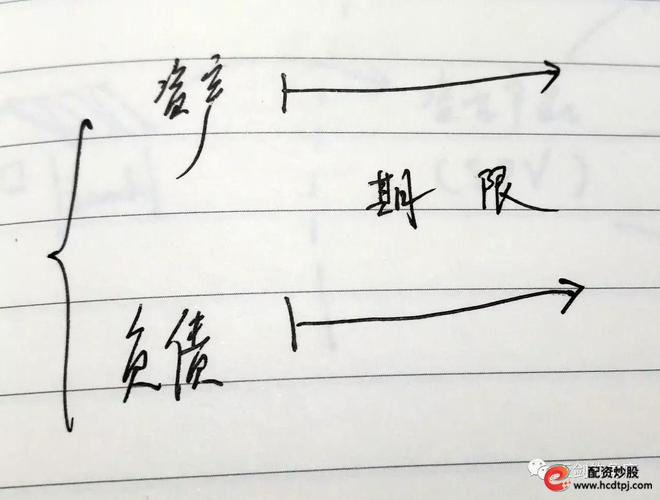 资产
期限
负债
配资炒股
www.hcdtpj.com